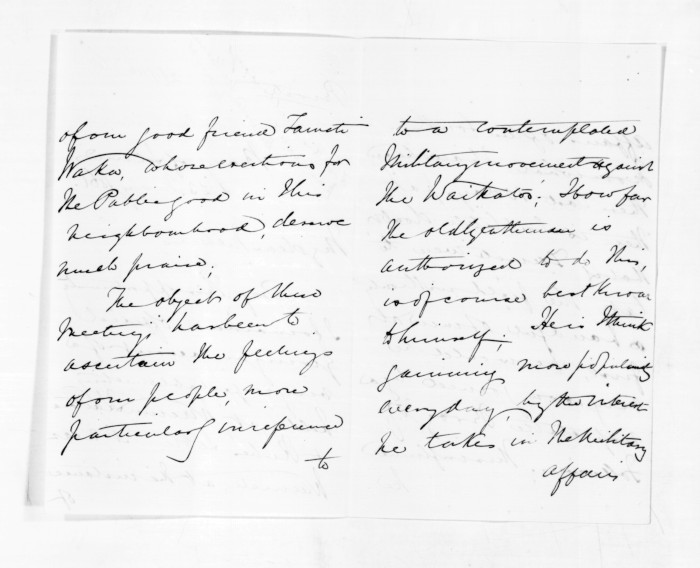 of our good friend Tamati
Waka, whose exertions for
the Public good in this
neighbourhood, deserve
much praise,
The object of these
meetings has been to
ascertain the feelings
of our people, more
particularly in reference
to
to a contemplated
Military movement against
the Waikatos; How far
the old gentleman is
authorized to do this,
is of course best known
to himself, He is I think
gaining more popularity
every day, by the interest
he takes in the Military
affairs